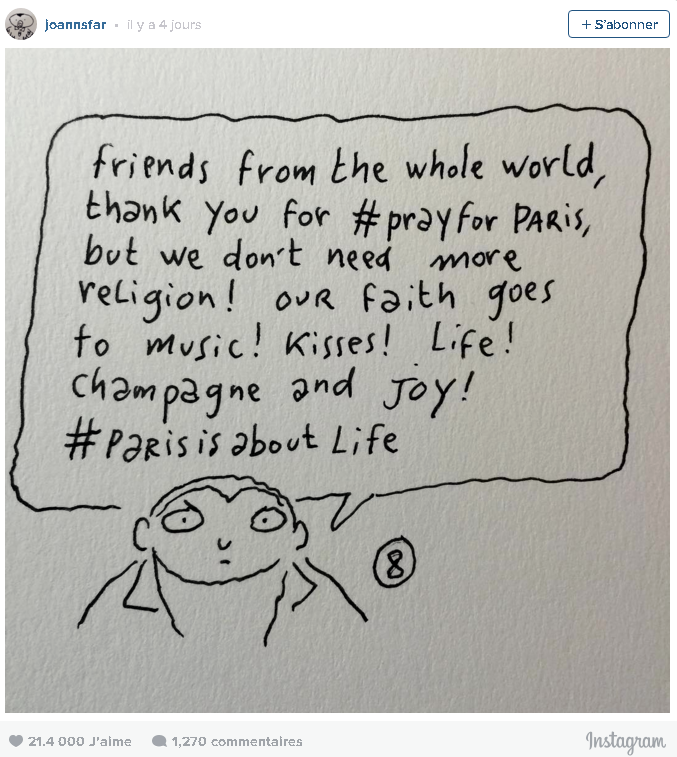 joannsfar • il y a 4 jours
+ S'abonner
friends from the whole world,
thank you for #prayforPARis,
but we don't need more
reLigion! ouR faith goes
to music! Kisses! Life!
champagne and JOY!
#PaRis is about Life
8
21.4 000 J'aime 1,270 commentaires
Instagram